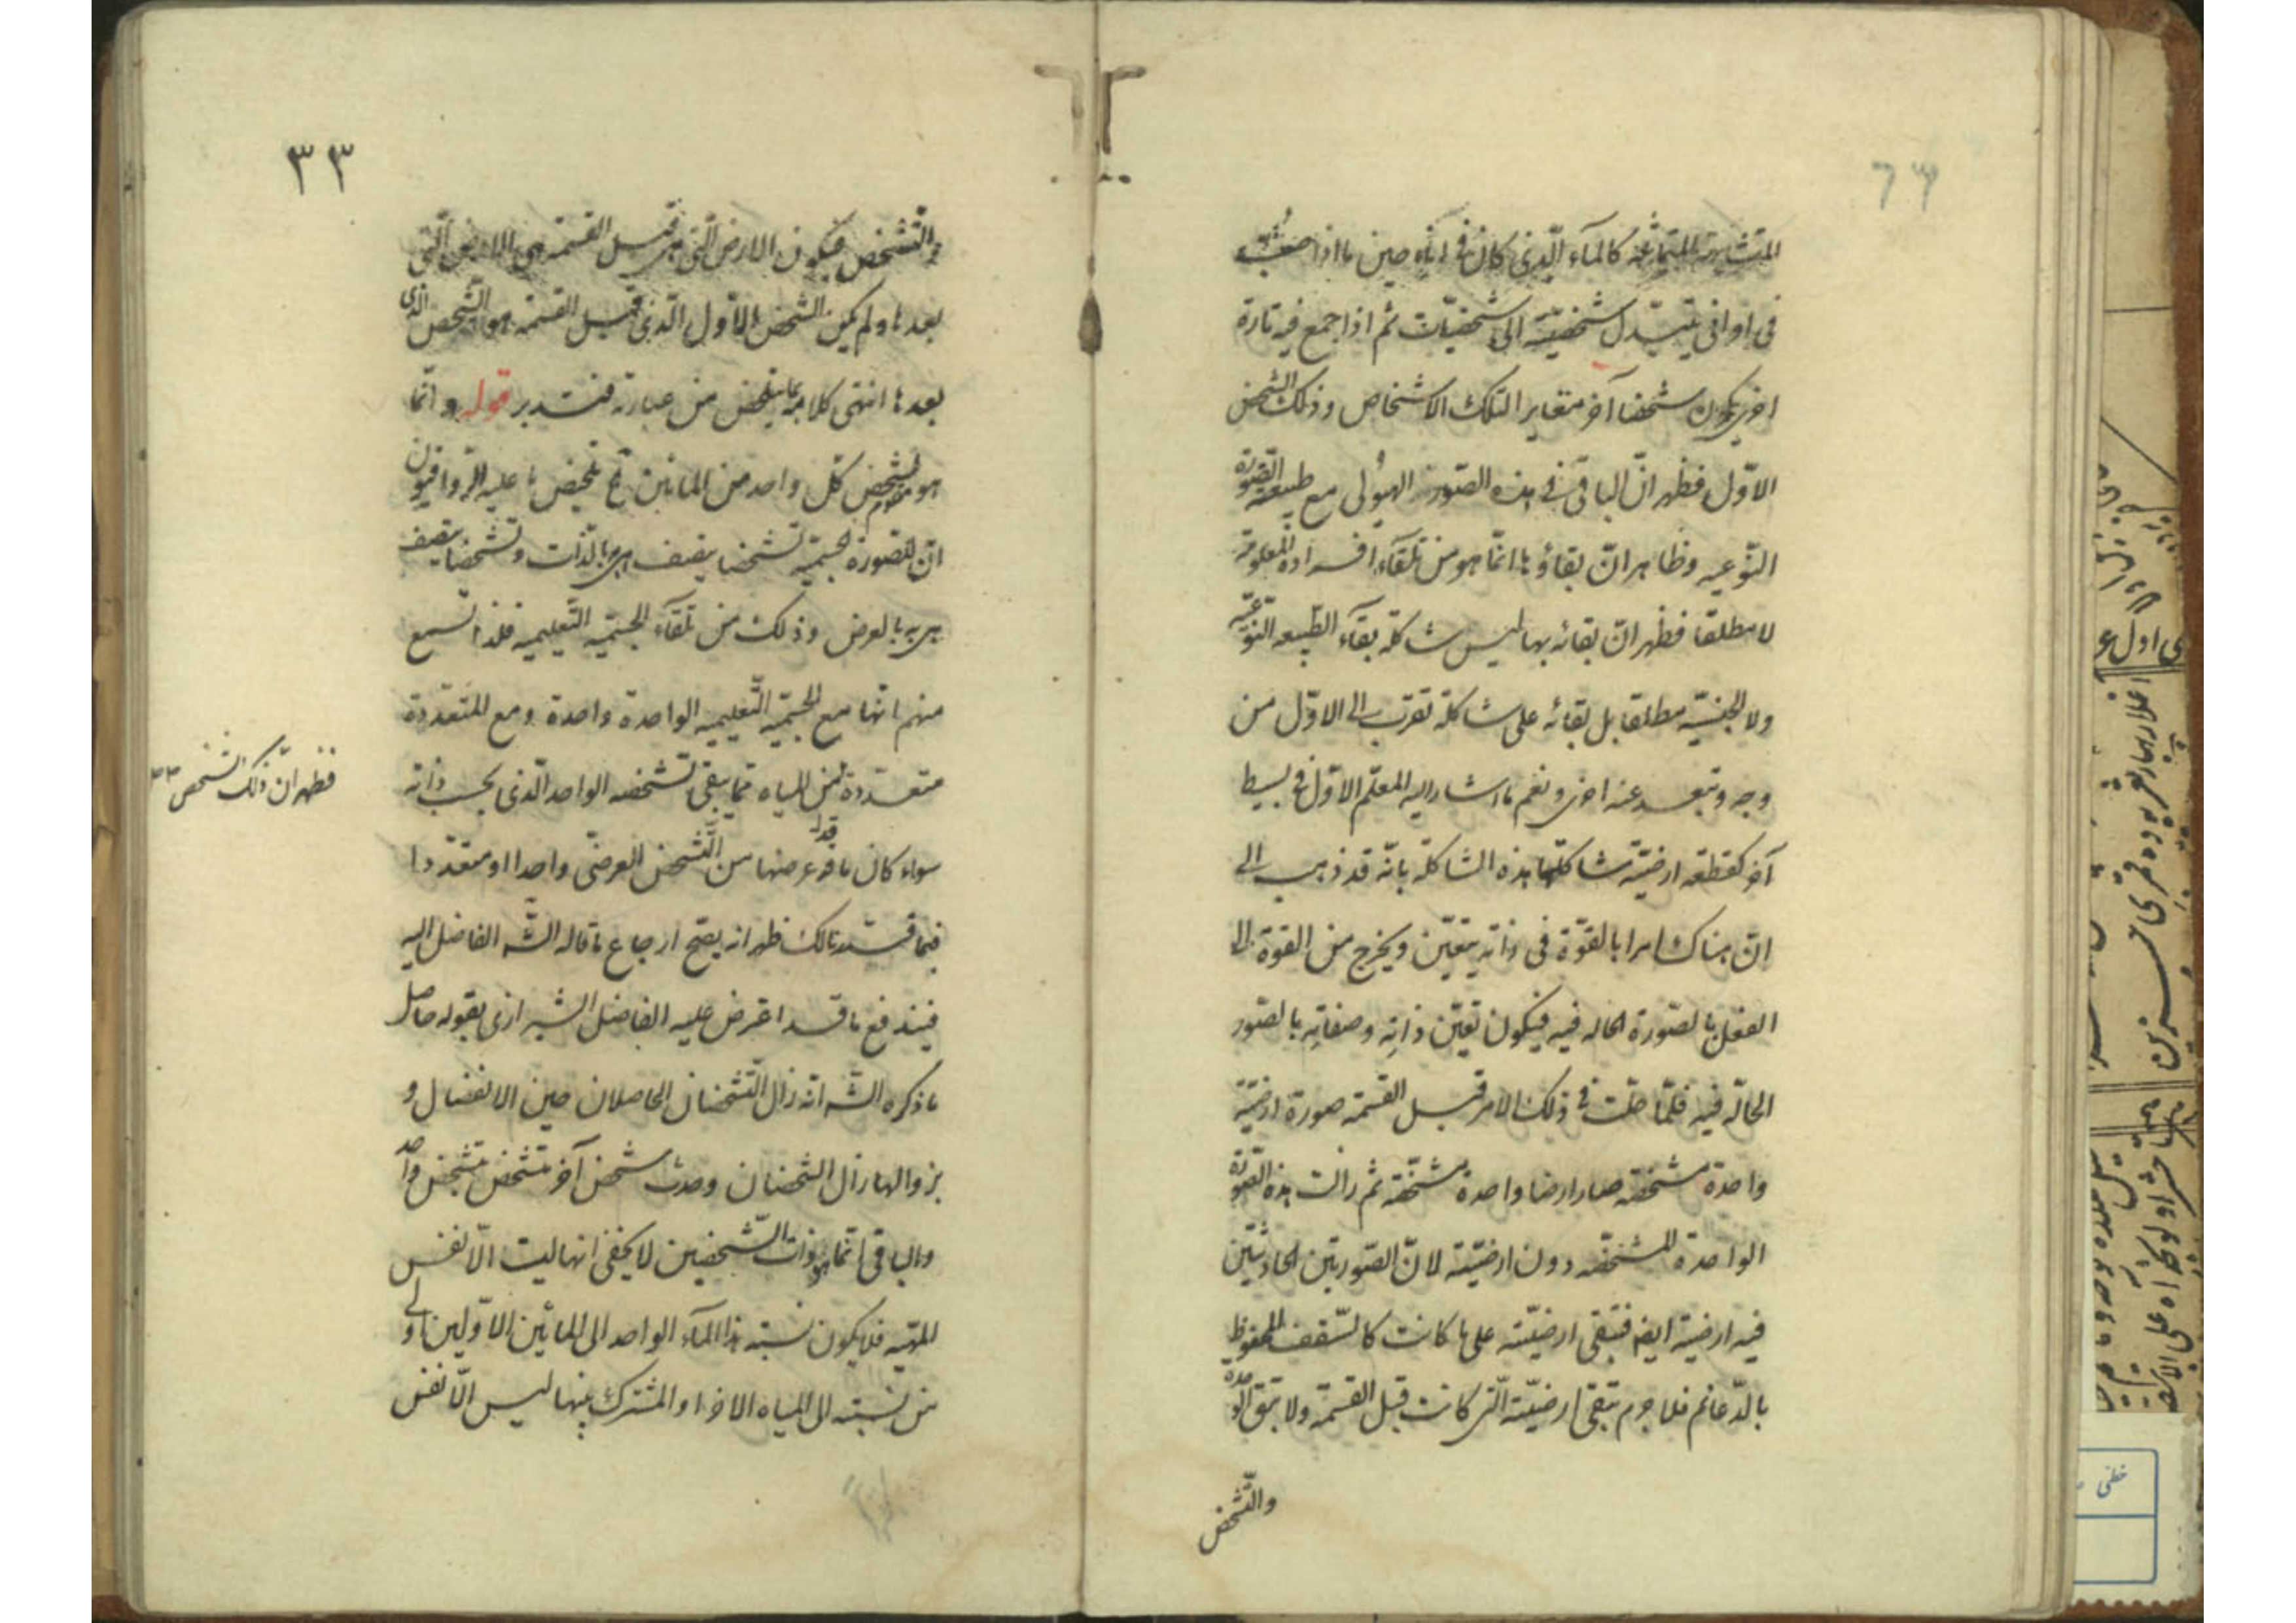 المتشابهة المتماثلة كالماء الّذى كان فى اناء حين ما اذا صُبّت
فى اوانى يتبدّل شخصيّته الى شخصيّات ثم اذا جمع فيه تارة
اخرى يكون شخصا آخر متغايرا لتلك الاشخاص وذلك الشخص
الاوّل فظهر انّ الباقى فى هذه الصّور الهيولى مع طبيعة الصّورة
النّوعيه وظاهر انّ بقاؤها انّما هو من تلقاء افراده المعلومة
لا مطلقا فظهر انّ بقائه بها ليس شاكلة بقاء الطّبيعه النّوعيّه
ولا الجنسيّه مطلقا بل بقائه على شاكلة تقرب الى الاوّل من
وجه وتبعد عنه اخرى ونعم ما اشار اليه المعلّم الاوّل فى بسيط
آخر كقطعه ارضيّة شاكلتها هذه الشاكلة بانّه قد ذهب الى
انّ هناك امرا بالقوّة فى ذاته يتعيّن ويخرج من القوة الى
الفعل بالصّورة الحاله فيه فيكون تعيّن ذاتِه وصفاتِه بالصّور
الحالّه فيه فلمّا حلّت فى ذلك الامر قبل القسمة صورة ارضيّة
واحدة مشخّصة صار ارضا واحدة مشخّصة ثم زالت هذه الصّورة
الواحدة المشخّصه دون ارضيّته لانّ الصّورتين الحادثتين
فيه ارضية ايضا فتبقى ارضيّته على ما كانت كالسّقف المحفوظ
بالدّعائم فلا جرم تبقى ارضيّته الّتى كانت قبل القسمة ولا تبقى الوحدة
والتّشخص
٣٣
والتّشخص فيكون الارض الّتى هى قبل القسمة هى الارض الّتى
بعدها ولم يكن الشخص الاوّل الّذى قبل القسمة هو الشّخص الّذى
بعدها انتهى كلامه بما يتلخص من عبارته فتدبر قوله وانّما
هو تشخص كلّ واحد من المائين تلخيص ما عليه الرّواقيون
انّ للصّورة الجسميّه تشخصا يتصف هى بالذّات وتشخصا يتصف
هى به بالعرض وذلك من تلقاء الجسميّه التّعليميه فلذا تسمع
منهم انّها مع الجسميّه التّعليميه الواحدة واحدة ومع المتعدّدة
متعدّدة فمن المياه ممّا يبقى تشخصه الواحد الّذى بحسب ذاته
سواء كان ما قد عرضها من التّشخص العرضى واحدا او متعدّدا
فبما قد تلونالك ظهر انه يصح ارجاع ما قاله الشّه الفاضل اليه
فيندفع ما قد اعترض عليه الفاضل الشيرازى بقوله حاصل
ما ذكره الشّه انّه زال التّشخصان الحاصلان حين الانفصال و
بزوالهما زال الشّخصان وحدث شخص آخر متشخص بتشخص واحد
والباقى انّما هو ذات الشّخصين لا يخفى انها ليست الّا نفس
المهيّه فلا يكون نسبته هذا الماء الواحد الى المائين الاوّلين اولى
من نسبته الى المياه الاخر اذ المشترك بينها ليس الّا نفس
فظهر انّ ذلك الشخص